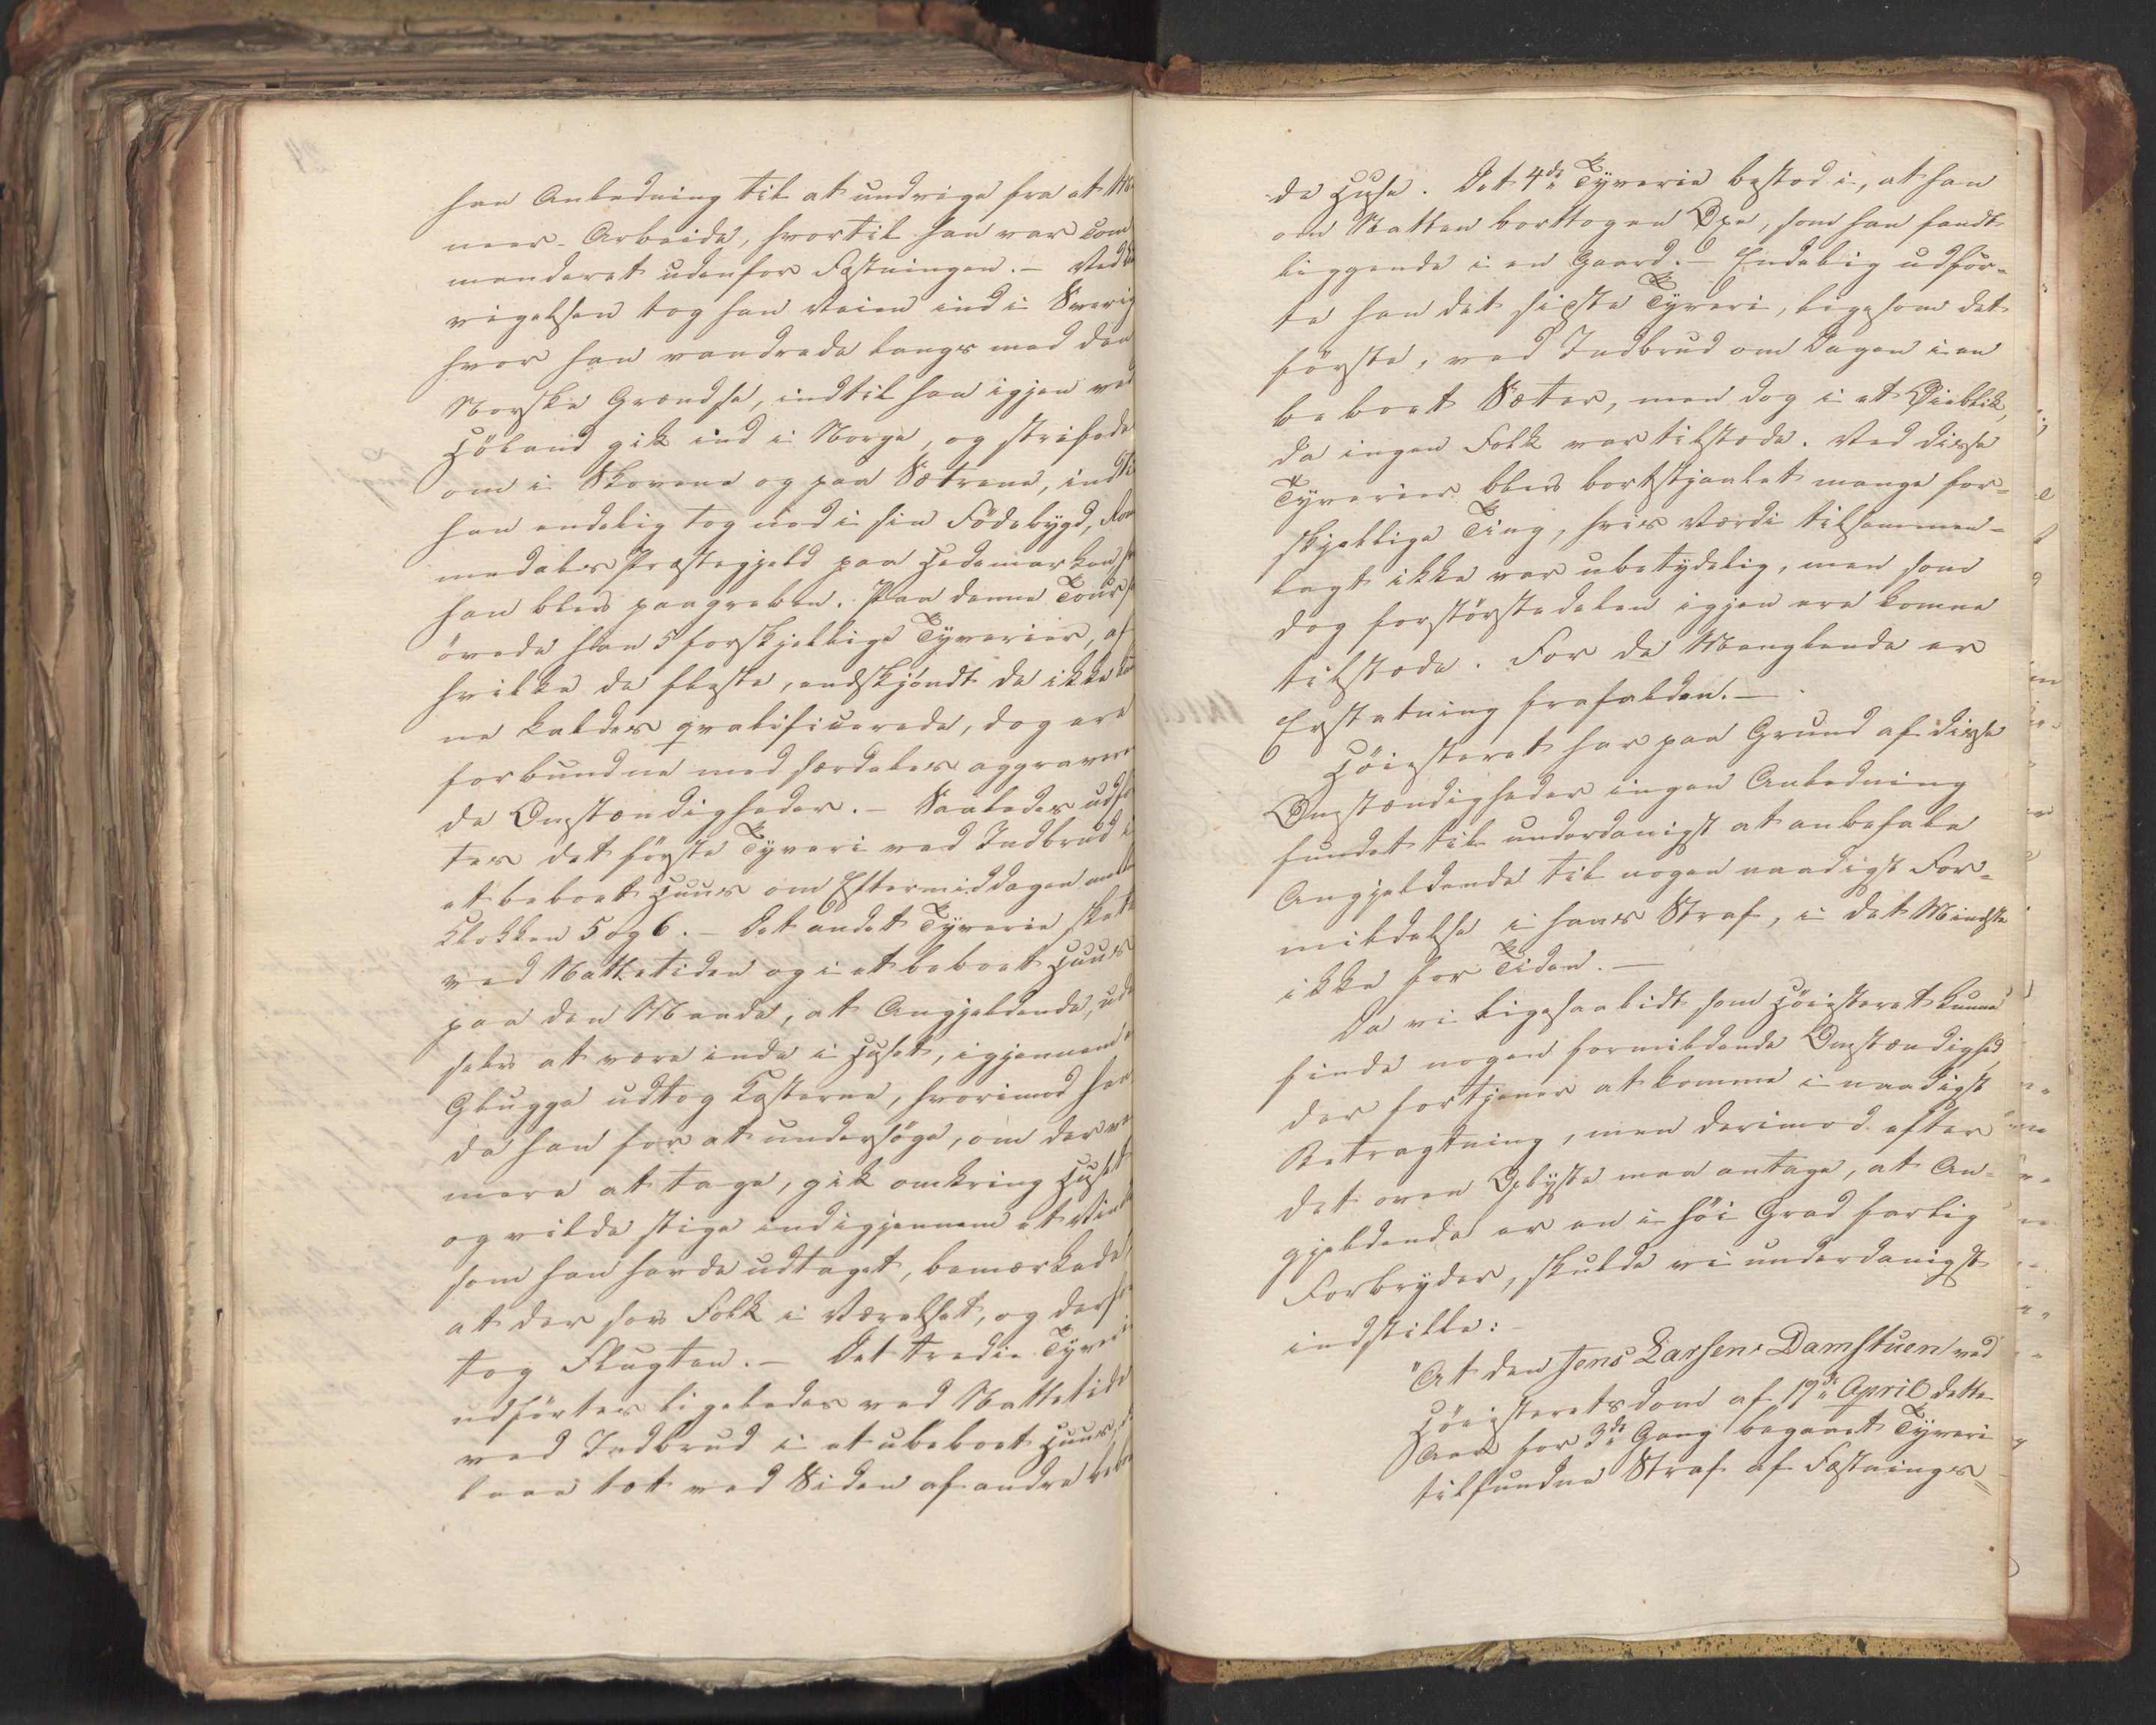 han Anledning til at undvige fra et
neer-Arbeide, hvortil han var com
manderet udenfor Fæstningen. – Ved
vigelsen tog han Veien ind i Sverig
hvor han vandrede langs med den
Norske Grændse, indtil han igjen ved
Höland gik ind i Norge, og streifede
om i Skovene og paa Sætrene, indti
han endelig tog ned i sin Födebygd, Rom
medals Præstegjeld paa Hedemarken
han blev paagreben. Paa denne Tour
övede han 5 forskjellige Tyverier, af
hvilke de fleste, endskjöndt de ikke kun
ne kaldes qvalificerede, dog ere
forbundne med særdeles aggraveren
de Omstændigheder. – Saaledes udför
tes det første Tyveri ved Indbrud i
et beboet Huus om Eftermiddagen mellem
Klokken 5 og 6. – Det andet Tyverie skete
ved Nattetiden og i et beboet Huus
paa den Maade, at Angjeldende, uden
selv at være inde i Huset, igjennem
Glugge udtog Kosterne, hvorimod han
da han for at undersöge, om der var
mere at tage, gik omkring Huset
og vilde stige ind igjennem et Vindu
som han havde udtaget, bemærkede
at der sov Folk i Værelset, og derfor
tog Flugten. – Det tredie Tyveri
udförtes ligeledes ved Nattetide
ved Indbrud i et ubeboet Huus,
laae tæt ved Siden af andre beboe
de Huse. Det 4de Tyverie bestod i, at han
om Natten borttog en Öxe, som han fandt
liggende i en Gaard. – Endelig udför-
te han det sidste Tyveri, ligesom det
förste, ved Indbrud om Dagen i en
beboet Sæter, men dog i et Øieblik,
da ingen Folk var tilstede. Ved disse
Tyverier blev bortstjaalet mange for-
skjellige Ting, hvis Værdi tilsammen-
lagt ikke var ubetydelig, men som
dog forstörstedelen igjen ere komne
tilstede. For de Manglende er
Erstatning frafalden. –
Höiesteret har paa Grund af disse
Omstændigheder ingen Anledning
fundet til underdanigst at anbefale
Angjeldende til nogen naadigst For-
mildelse i hans Straf, i det Mindste
ikke for Tiden. –
Da vi ligesaalidt som Höiesteret kunne
finde nogen formildende Omstændighed,
der fortjener at komme i naadigst
Betragtning, men derimod efter
det oven Oplyste maa antage, at An-
gjeldende er en i höi Grad farlig
Forbryder, skulde vi underdanigst
indstille: –
"At den Jens Larsen Damstuen ved
Höiesteretsdom af 19de April dette
Aar for 3de Gang begaaet Tyveri
tilfundne Straf af Fæstnings-